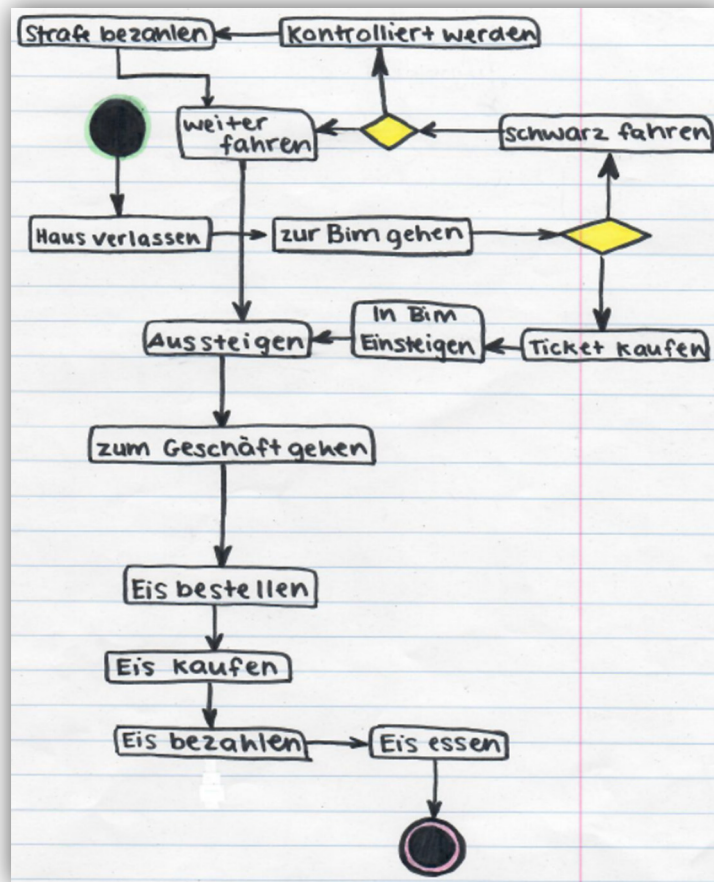 Strafe bezahlen
Kontrolliert werden
weiter
fahren
schwarz fahren
Haus verlassen
zur Bim gehen
Aussteigen
In Bim
Einsteigen
Ticket kaufen
zum Geschäft gehen
Eis bestellen
Eis kaufen
Eis bezahlen
Eis essen